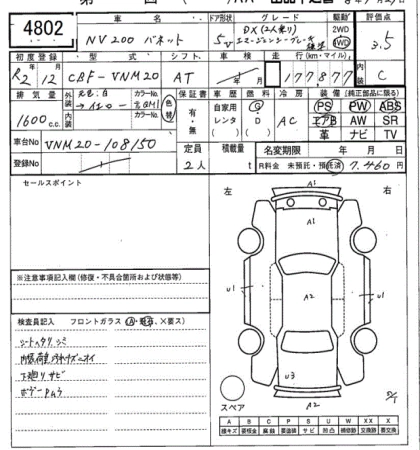 4802
車名
NV200 バネット
ドア形状
5V
グレード
DX(2人乗り)
エマージェンシーブレーキ
駆動
2WD
4WD
評価点
3.5
初度登録
R2年12月
型式
CBF-VNM20
シフト
AT
車検
年 月
走行(km・マイル)
177877
内装
C
排気量
1600 c.c.
外装
元色:白
→イエロー
カラーNo.
色替
内装
カラーNo.
保証書
有・無
車歴
自家用
レンタ
( )
燃料
G
D
( )
冷房
AC
装備(純正部品に限る)
PS PW ABS
エアB AW SR
革 ナビ TV
車台No
VNM20-108150
登録No
定員
2人
積載量
t
名変期限 年 月 日
R料金 未預託・預託済 7,460円
セールスポイント
※注意事項記入欄(修復・不具合箇所および状態等)
検査員記入 フロントガラス(A・飛石・X要ス)
下廻りサビ
左
右
A1
A1
U1
A2
U1
U3
A2
スペア
A B C P S U W X XX
線キズ 要板金 腐蝕 要塗装 サビ 凹凸 補修跡 交換跡 要交換